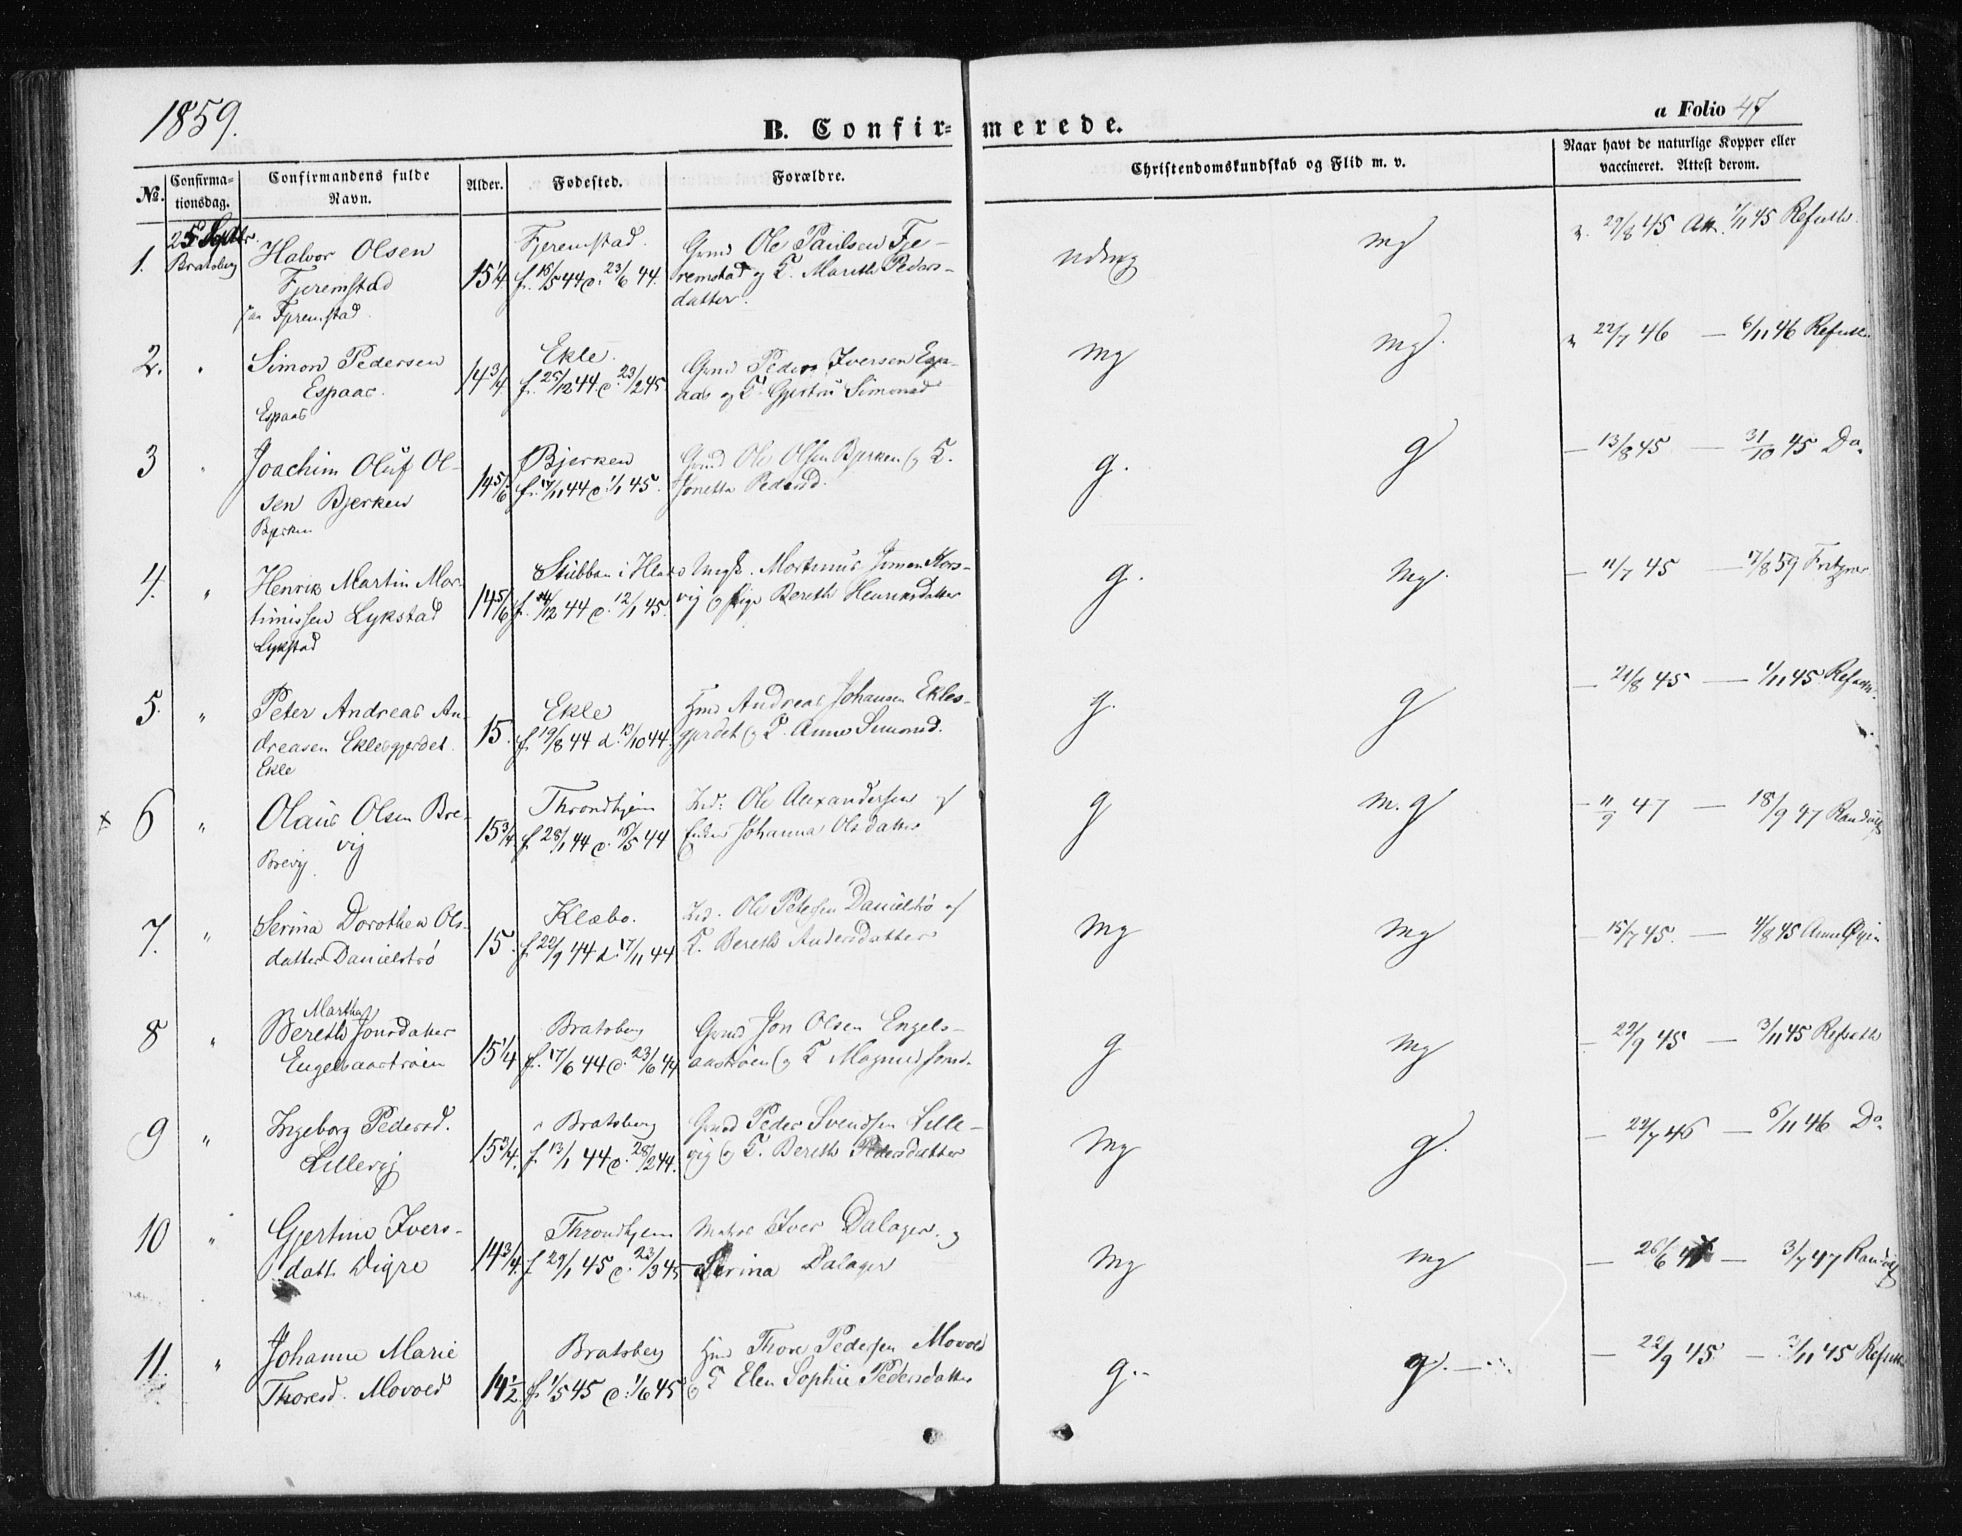 1859.
B. Confir- merede.
a Folio 47
No.
Confirma-
tionsdag.
Confirmandens fulde
Navn.
Alder.
Fødested.
Forældre.
Christendomskundskab og Flid m. v.
Naar havt de naturlige Kopper eller
vaccineret. Attest derom.
1.
25 Septbr.
Bratsberg
Halvor Olsen
Fjeremstad
Fjeremstad
15 1/4.
Fjeremstad.
f. 15/5 44 d. 23/6 44.
Gmd Ole Paulsen Fje-
remstad og K. Mareth Peders-
datter.
Udmg
mg
v. 29/8 45 Att. 1/11 45 Refseth.
2.
Simon Pedersen
Espaas.
Espaas
14 3/4
Ekle.
f. 25/12 44 d. 23/2 45
Gmd Peder Iversen Esp-
aas og K. Gjertru Simonsd
mg
mg.
v 22/7 46 — 6/11 46 Refseth
3
Joachim Oluf Ol-
sen Bjerken
Bjerken
14 5/6
Bjerken
f. 17/11 44 d. 1/1 45.
Gmd Ole Olsen Bjerken og K.
Jonetta Pedersd.
g.
g
— 13/8 45 — 31/10 45 Do.
4.
"
Henrik Martin Mor-
timissen Lykstad
Lykstad
14 5/6
Stubban i
f. 14/12 44 d. 12/1 45.
Ungk. Mortinus Jonsen Kors-
vig og Pige Bereth Henriksdatter
g.
mg.
— 11/7 45 — 17/8 59 Fritzner
5.
"
Peter Andreas An-
dreasen Eklesgjerdet.
Ekle
15.
Ekle
f. 19/8 44 d. 13/10 44.
Hmd Andreas Johansen Ekles-
gjerdet og K. Anne Simonsd.
g.
g
— 21/8 45 — 1/11 45 Refseth.
x 6
"
Olaus Olsen Bre-
vig
Brevig
15 3/4
Throndhjem
f. 28/1 44 d. 16/5 44
Ole Alexandersen og
Johanna Olsdatter
g
m. g
— 11/9 47 — 18/9 47
7.
"
Serina Dorothea Ols-
datter Danielstrø
15.
Klæbo.
f. 22/9 44 d. 17/11 44
Ind. Ole Petersen Danielstrø og
K. Bereth Andersdatter
mg
mg
— 15/7 45. — 4/8 45 Anne Øyen
8
"
Martha
Bereth Jonsdatter
Engelsaastrøen
15 1/4
Bratsberg
f. 17/6 44 d. 23/6 44
Gmd Jon Olsen Engels-
aastrøen og K Magnild Jonsd.
g
mg
— 22/9 45 — 3/11 45 Refseth
9
"
Ingeborg Pedersd.
Lillevig
15 3/4.
Bratsberg
f. 13/1 44 d. 28/2 44.
Gmd Peder Svendsen Lille-
vig og K. Bereth Pedersdatter
mg
g.
— 22/7 46 — 6/11 46 Do.
10
"
Gjertine Ivers-
datt. Digre
14 3/4.
Throndhjem
f. 29/1 45 d. 23/3 45
Iver Dalager og
Serina Dalager
mg
mg
— 26/6 47 — 3/7 47
11.
"
Johanne Marie
Thoresd. Movoed
14 1/2.
Bratsberg
f. 1/5 45 d. 1/6 45
Hmd Thore Pedersen Movold
og K Elen Sophie Pedersdatter
g.
g.
— 22/9 45 — 3/11 45 Refseth